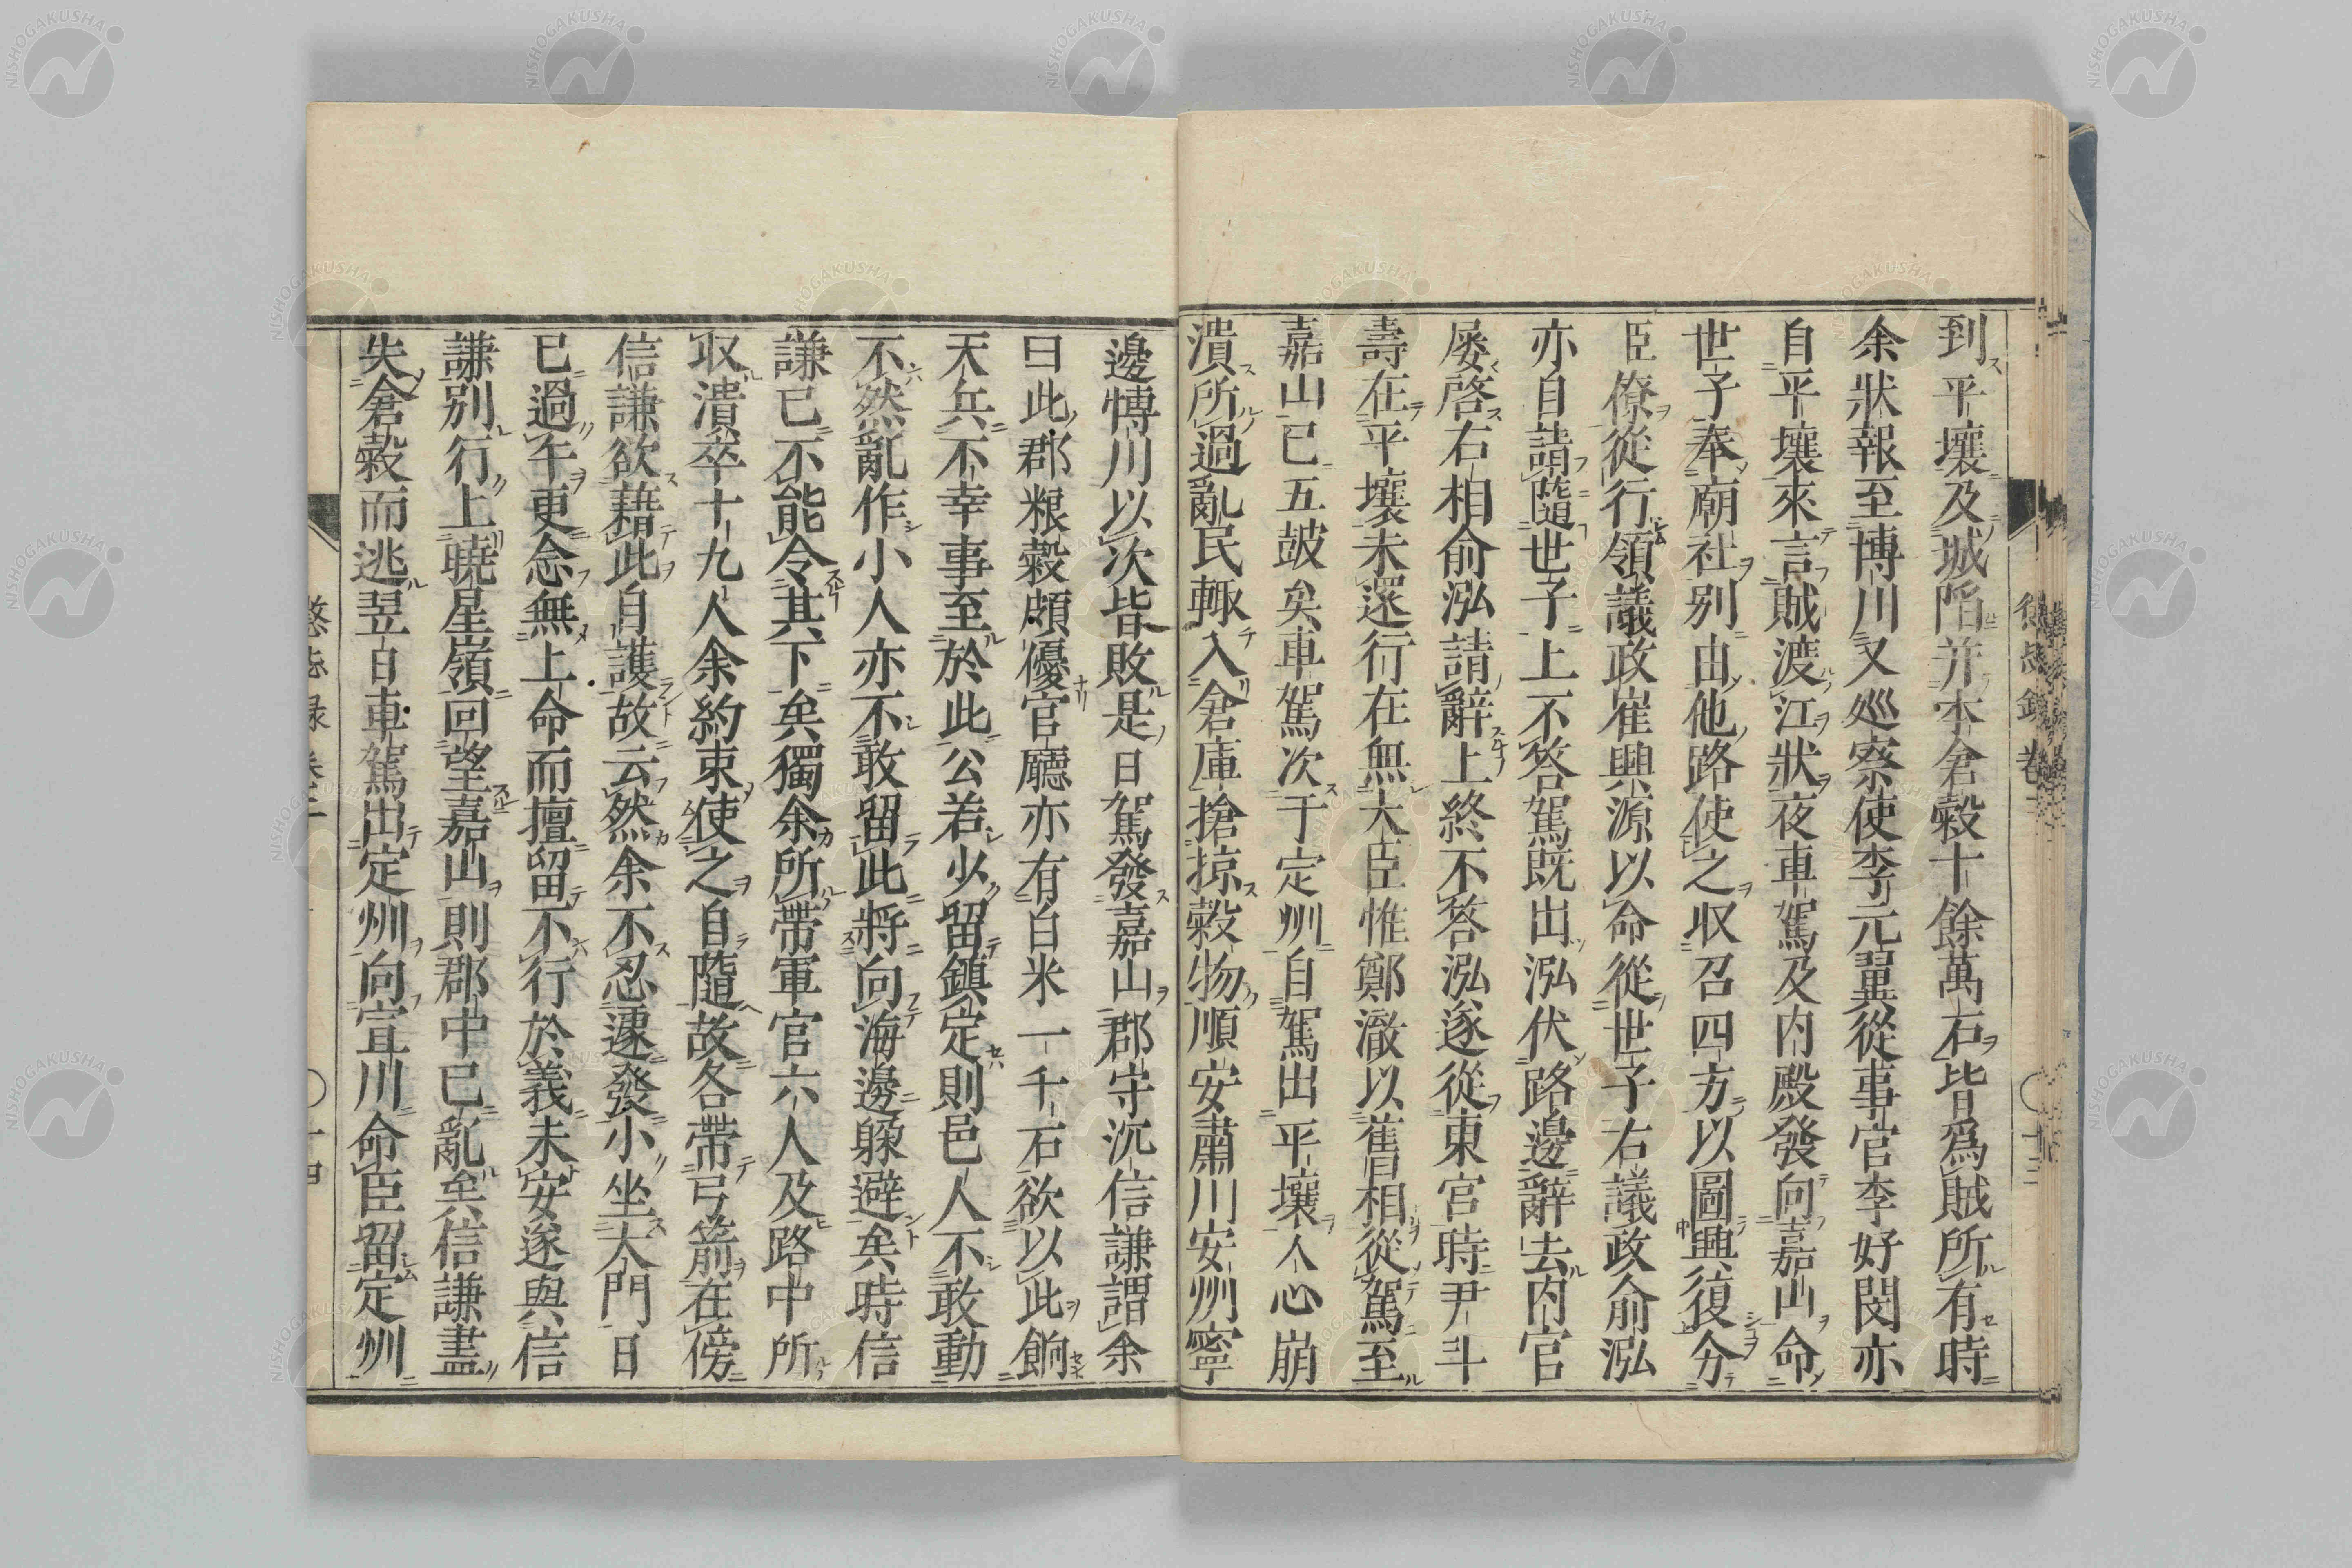 到平壤及城陷并本倉穀十餘萬石皆爲賊所有時
余狀報至博川又巡察使李元翼從事官李好閔亦
自平壤來言賊渡江狀夜車駕及内殿發向嘉山命
世子奉廟社別由他路使之収召四方以圖興復分
臣僚從行領議政崔興源以命從世子右議政俞泓
亦自請隨世子上不答駕既出泓伏路邊辭去内官
屡啓右相俞泓請辭上終不答泓遂從東宮時尹斗
壽在平壤未還行在無大臣惟鄭澈以舊相從駕至
嘉山已五皷矣車駕次于定州自駕出平壤人心崩
潰所過亂民輙入倉庫搶掠穀物順安肅川安州寧
邊博川以次皆敗是日駕發嘉山郡守沉信謙謂余
曰此郡粮穀頗優官廳亦有白米一千石欲以此餉
天兵不幸事至於此公若少留鎮定則邑人不敢動
不然亂作小人亦不敢留此將向海邊躲避矣時信
謙已不能令其下矣獨余所帶軍官六人及路中所
収潰卒十九人余約束使之自隨故各帶弓箭在傍
信謙欲藉此自護故云然余不忍遽發小坐大門日
已過午更念無上命而擅留不行於義未安遂與信
謙別行上曉星嶺回望嘉山則郡中已亂矣信謙盡
失倉穀而逃翌日車駕出定州向宣川命臣留定州